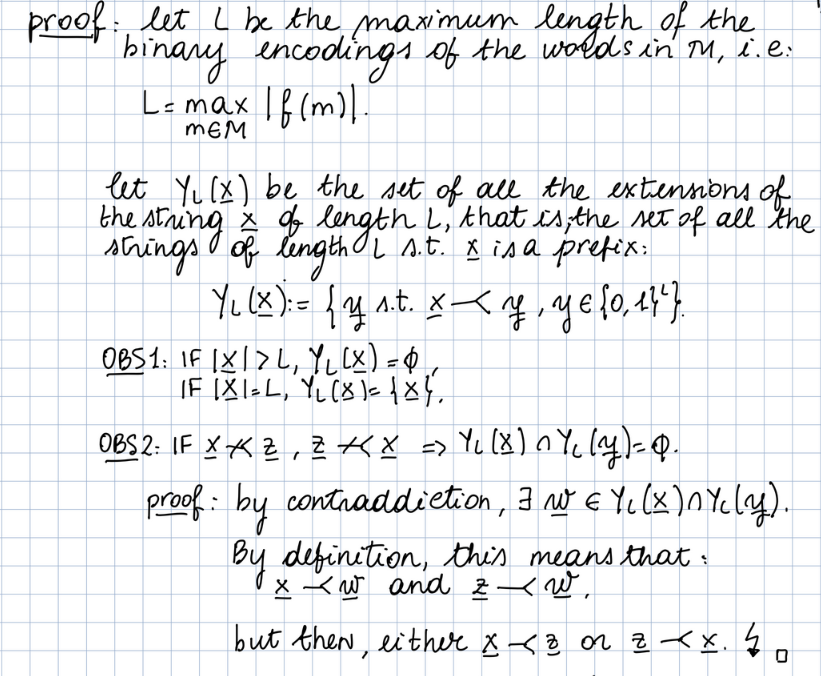 proof: let L be the maximum length of the
binary encodings of the words in M, i.e:
L = max |f(m)|.
m∈M
let Y_L(x) be the set of all the extensions of
the string x of length L, that is, the set of all the
strings of length L s.t. x is a prefix:
Y_L(x) := {y s.t. x ≺ y, y ∈ {0,1}^L}.
OBS1: IF |x| > L, Y_L(x) = ∅,
IF |x| = L, Y_L(x) = {x}.
OBS2: IF x ⊀ z, z ⊀ x => Y_L(x) ∩ Y_L(y) = ∅.
proof: by contraddiction, ∃ w ∈ Y_L(x) ∩ Y_L(y).
By definition, this means that:
x ≺ w and z ≺ w,
but then, either x ≺ z or z ≺ x. ↯ □